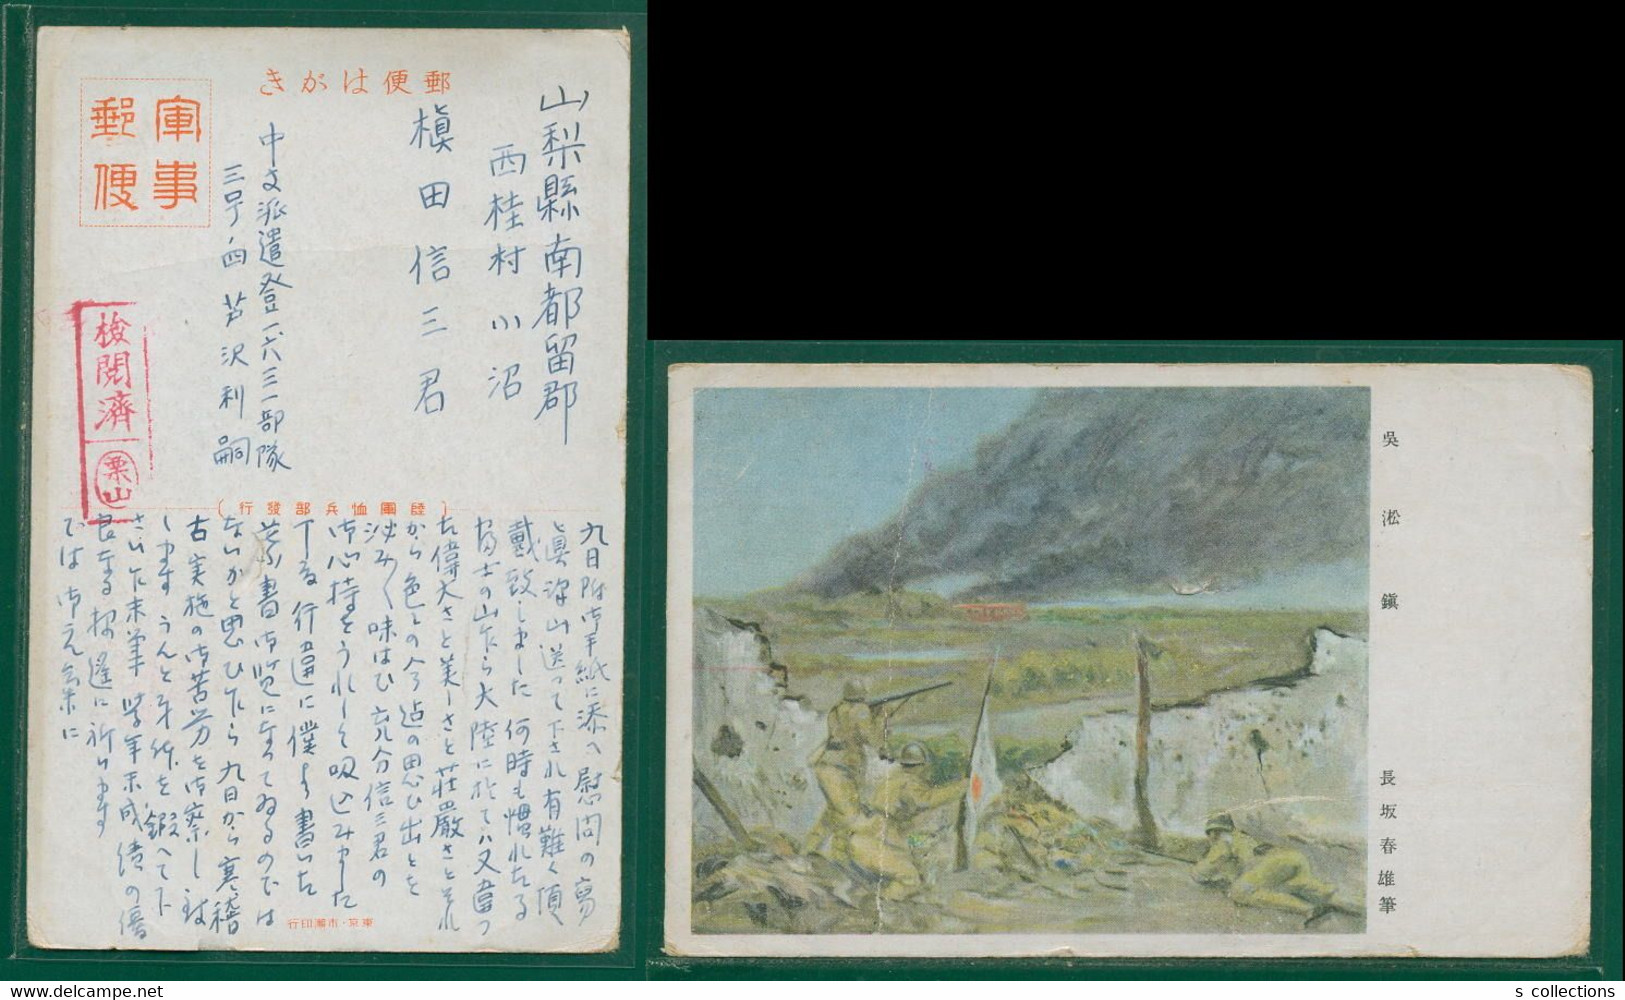 郵便はがき
軍事
郵便
山梨縣南都留郡
西桂村小沼
槇田信三君
中支派遣登一六三一部隊
三号ノ四 芦沢利嗣
検閲済
栗山
(陸軍恤兵部發行)
九日附御手紙に添へ慰問の寫
眞澤山送って下され有難く頂
戴致しました 何時も憧れたる
富士の山 大陸に於て又違つ
た偉大さと美しさと荘嚴さとそれ
から色々の今迄の思ひ出とを
泌み〲味はひ 充分信三君の
御心持をうれしく吸込みました
丁度行違に僕より書いた
葉書御覧になってゐるのでは
ないかと思ひ 九日から寒稽
古実施の御苦労を御察し致
します うんと身体を鍛へて下
さい 末筆 学年末成績の優
良なる様遥に祈ります
では
東京・市瀬印行
吳淞鎭
長坂春雄筆
s collections